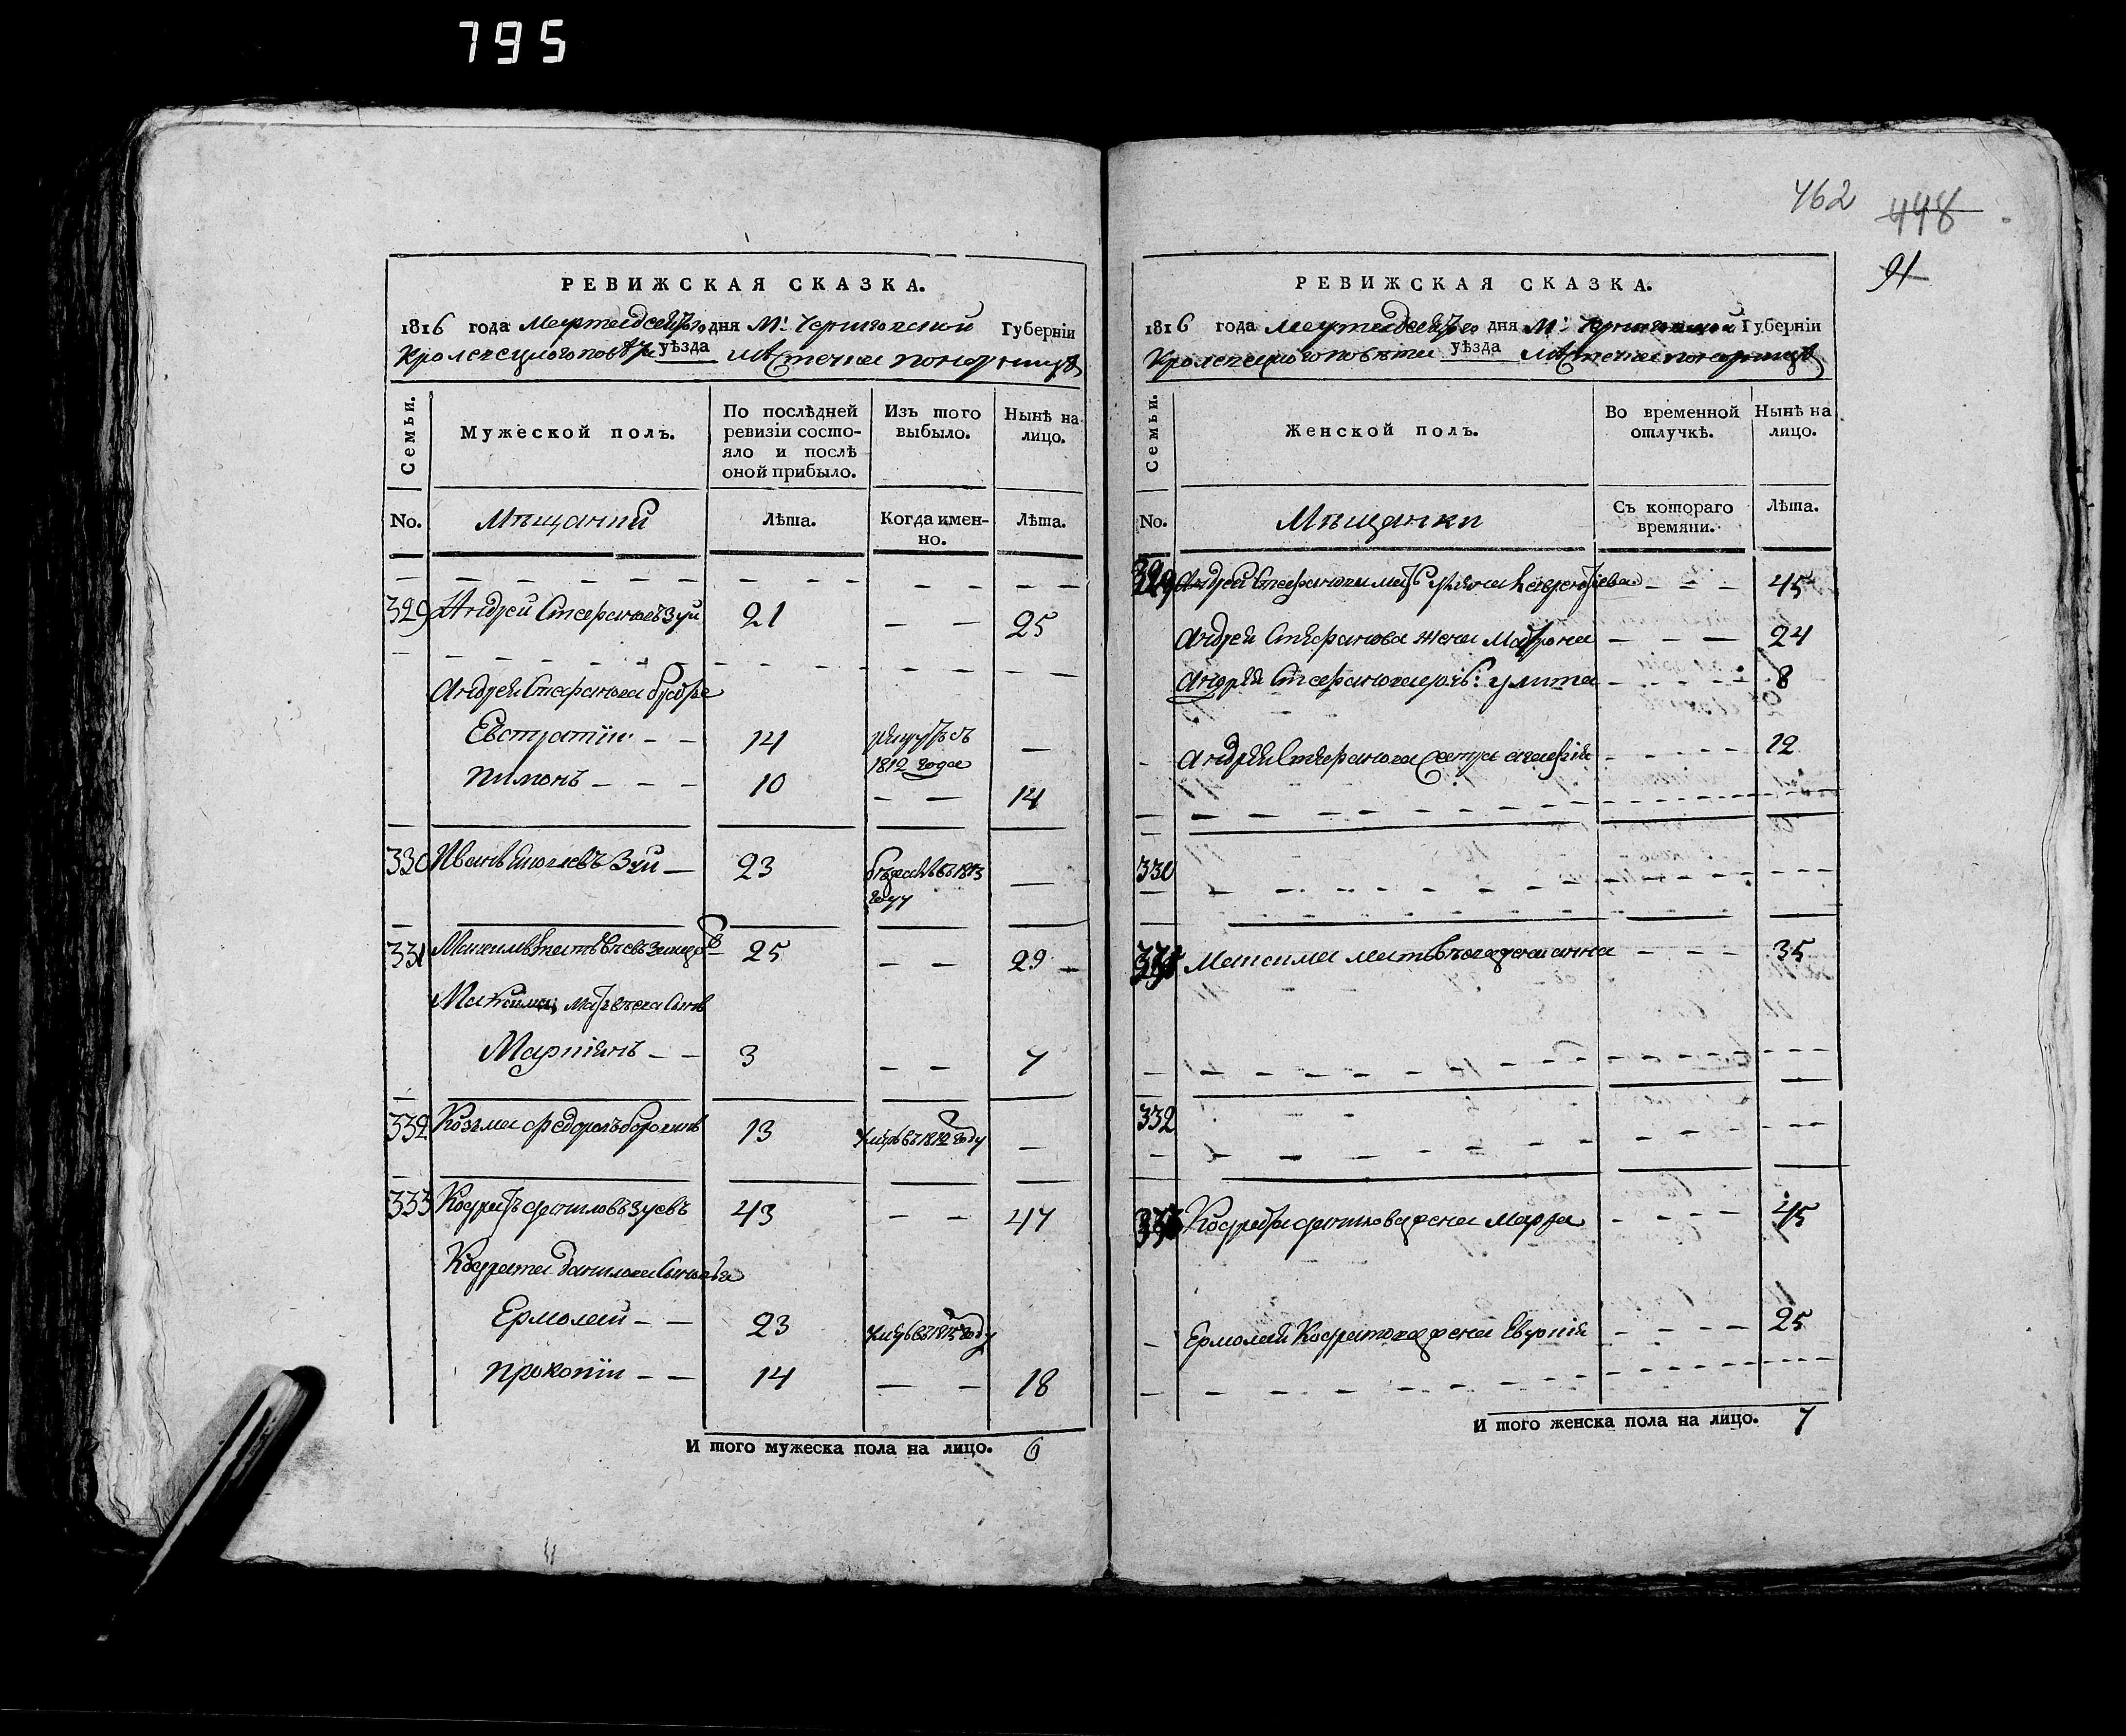 795
462
448
91
РЕВИЖСКАЯ СКАЗКА.
1816 года Марта десятого дня Мᵗ Черниговской Губернiи
Кролевецкого повѣта уѣзда мѣстечка понорницѣ
Семьи.
Мужеской полъ.
По послѣдней ревизiи состо-
яло и послѣ
оной прибыло.
Изъ того
выбыло.
Нынѣ на
лицо.
No. Мѣщанѣ Лѣта. Когда имен-
но. Лѣта.
329 Андрей Стефановъ Зуй 21 — — 25
Андрея Стефанова братья
Евстратiи — — 14 рекрутъ съ
1812 года —
Пимонъ — — — 10 — — 14
330 Иванъ Зуй — 23 бежалъ въ 1813
году —
331 Максимъ матвѣевъ 25 — — 29
Максима Матвѣева сынъ
Мартiянъ — — 3 — — 7
332 Козма федоровъ 13 умеръ въ 1812 году —
333 Кодратъ даниловъ зуевъ 43 — — 47
Кодрата данилова сыновья
Ермолай — — 23 умеръ въ 1815 году
Прокопiи — — 14 — — 18
И того мужеска пола на лицо. 6
РЕВИЖСКАЯ СКАЗКА.
1816 года Марта десятого дня Мᵗ Черниговской Губернiи
Кролевецкого повѣта уѣзда мѣстечка понорницѣ
Семьи.
Женской полъ.
Во временной
отлучкѣ.
Нынѣ на
лицо.
No. Мѣщанки Съ котораго
времяни. Лѣта.
329 Андрея Стефанова мать — — — 45
Андрея Стефанова жена Матрона — — — 24
Андрея Стефанова дочь: улита — — — 8
Андрея Стефанова сестра агафiя — — — 12
330
331 Максима матвѣева жена анна — — — 35
332
333 Кодрата данилова жена Марфа — — — 45
Ермолая Кодратова жена Евгенiя — — — 25
И того женска пола на лицо. 7